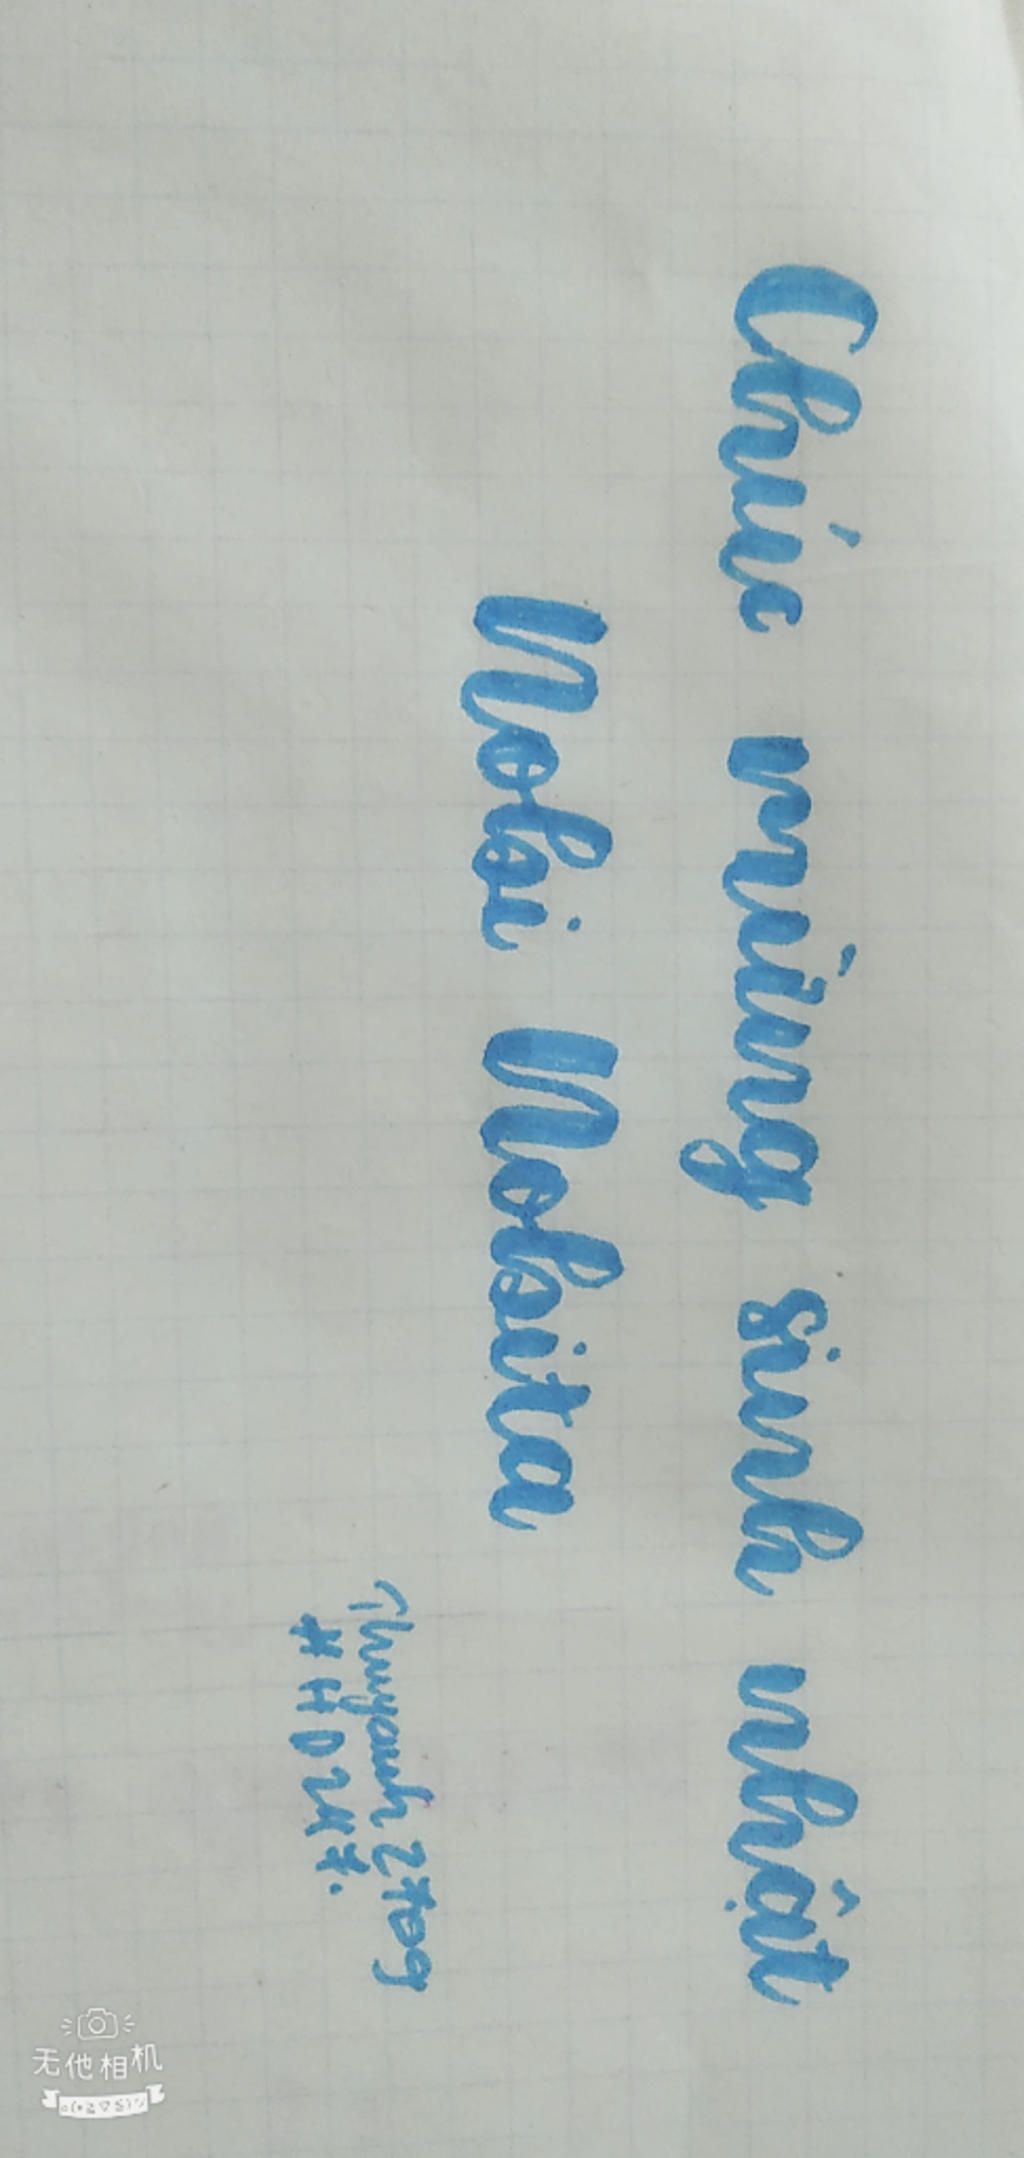 Chúc mừng sinh nhật
Nobi Nobita
Thuyanh2709
无他相机